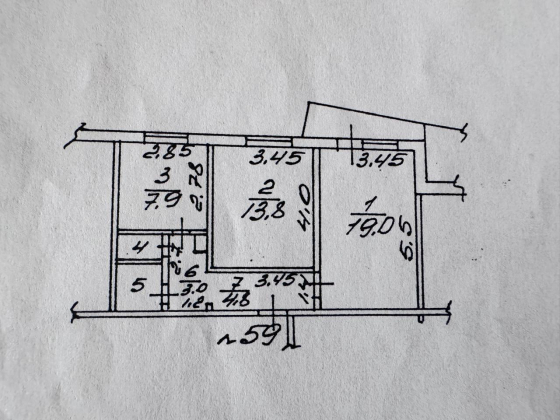 2.85
3
7.9
2.78
3.45
2
13.8
4.0
3.45
1
19.0
5.5
4
5
2.7
6
3.0
1.2
7
4.8
3.45
1.4
59